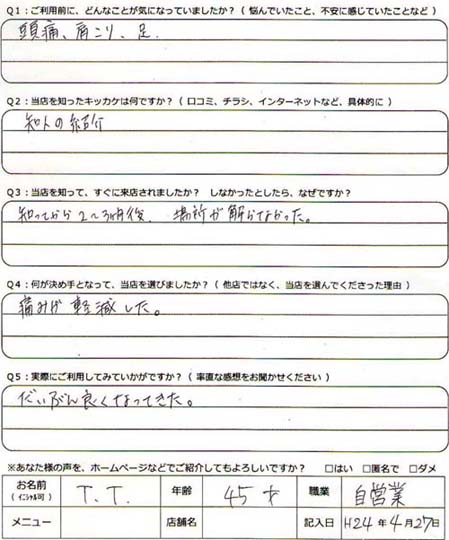 Q1：ご利用前に、どんなことが気になっていましたか？（ 悩んでいたこと、不安に感じていたことなど ）
頭痛、肩こり、足、
Q2：当店を知ったキッカケは何ですか？（ 口コミ、チラシ、インターネットなど、具体的に ）
知人の紹介
Q3：当店を知って、すぐに来店されましたか？ しなかったとしたら、なぜですか？
知ってから2〜3ヶ月後、場所が解らなかった。
Q4：何が決め手となって、当店を選びましたか？（ 他店ではなく、当店を選んでくださった理由 ）
痛みが軽減した。
Q5：実際にご利用してみていかがですか？（ 率直な感想をお聞かせください ）
だいぶん良くなってきた。
※あなた様の声を、ホームページなどでご紹介してもよろしいですか？ □はい □匿名で □ダメ
お名前 T.T. 年齢 45才 職業 自営業
（ｲﾆｼｬﾙ可）
メニュー 店舗名 記入日 H24年4月27日